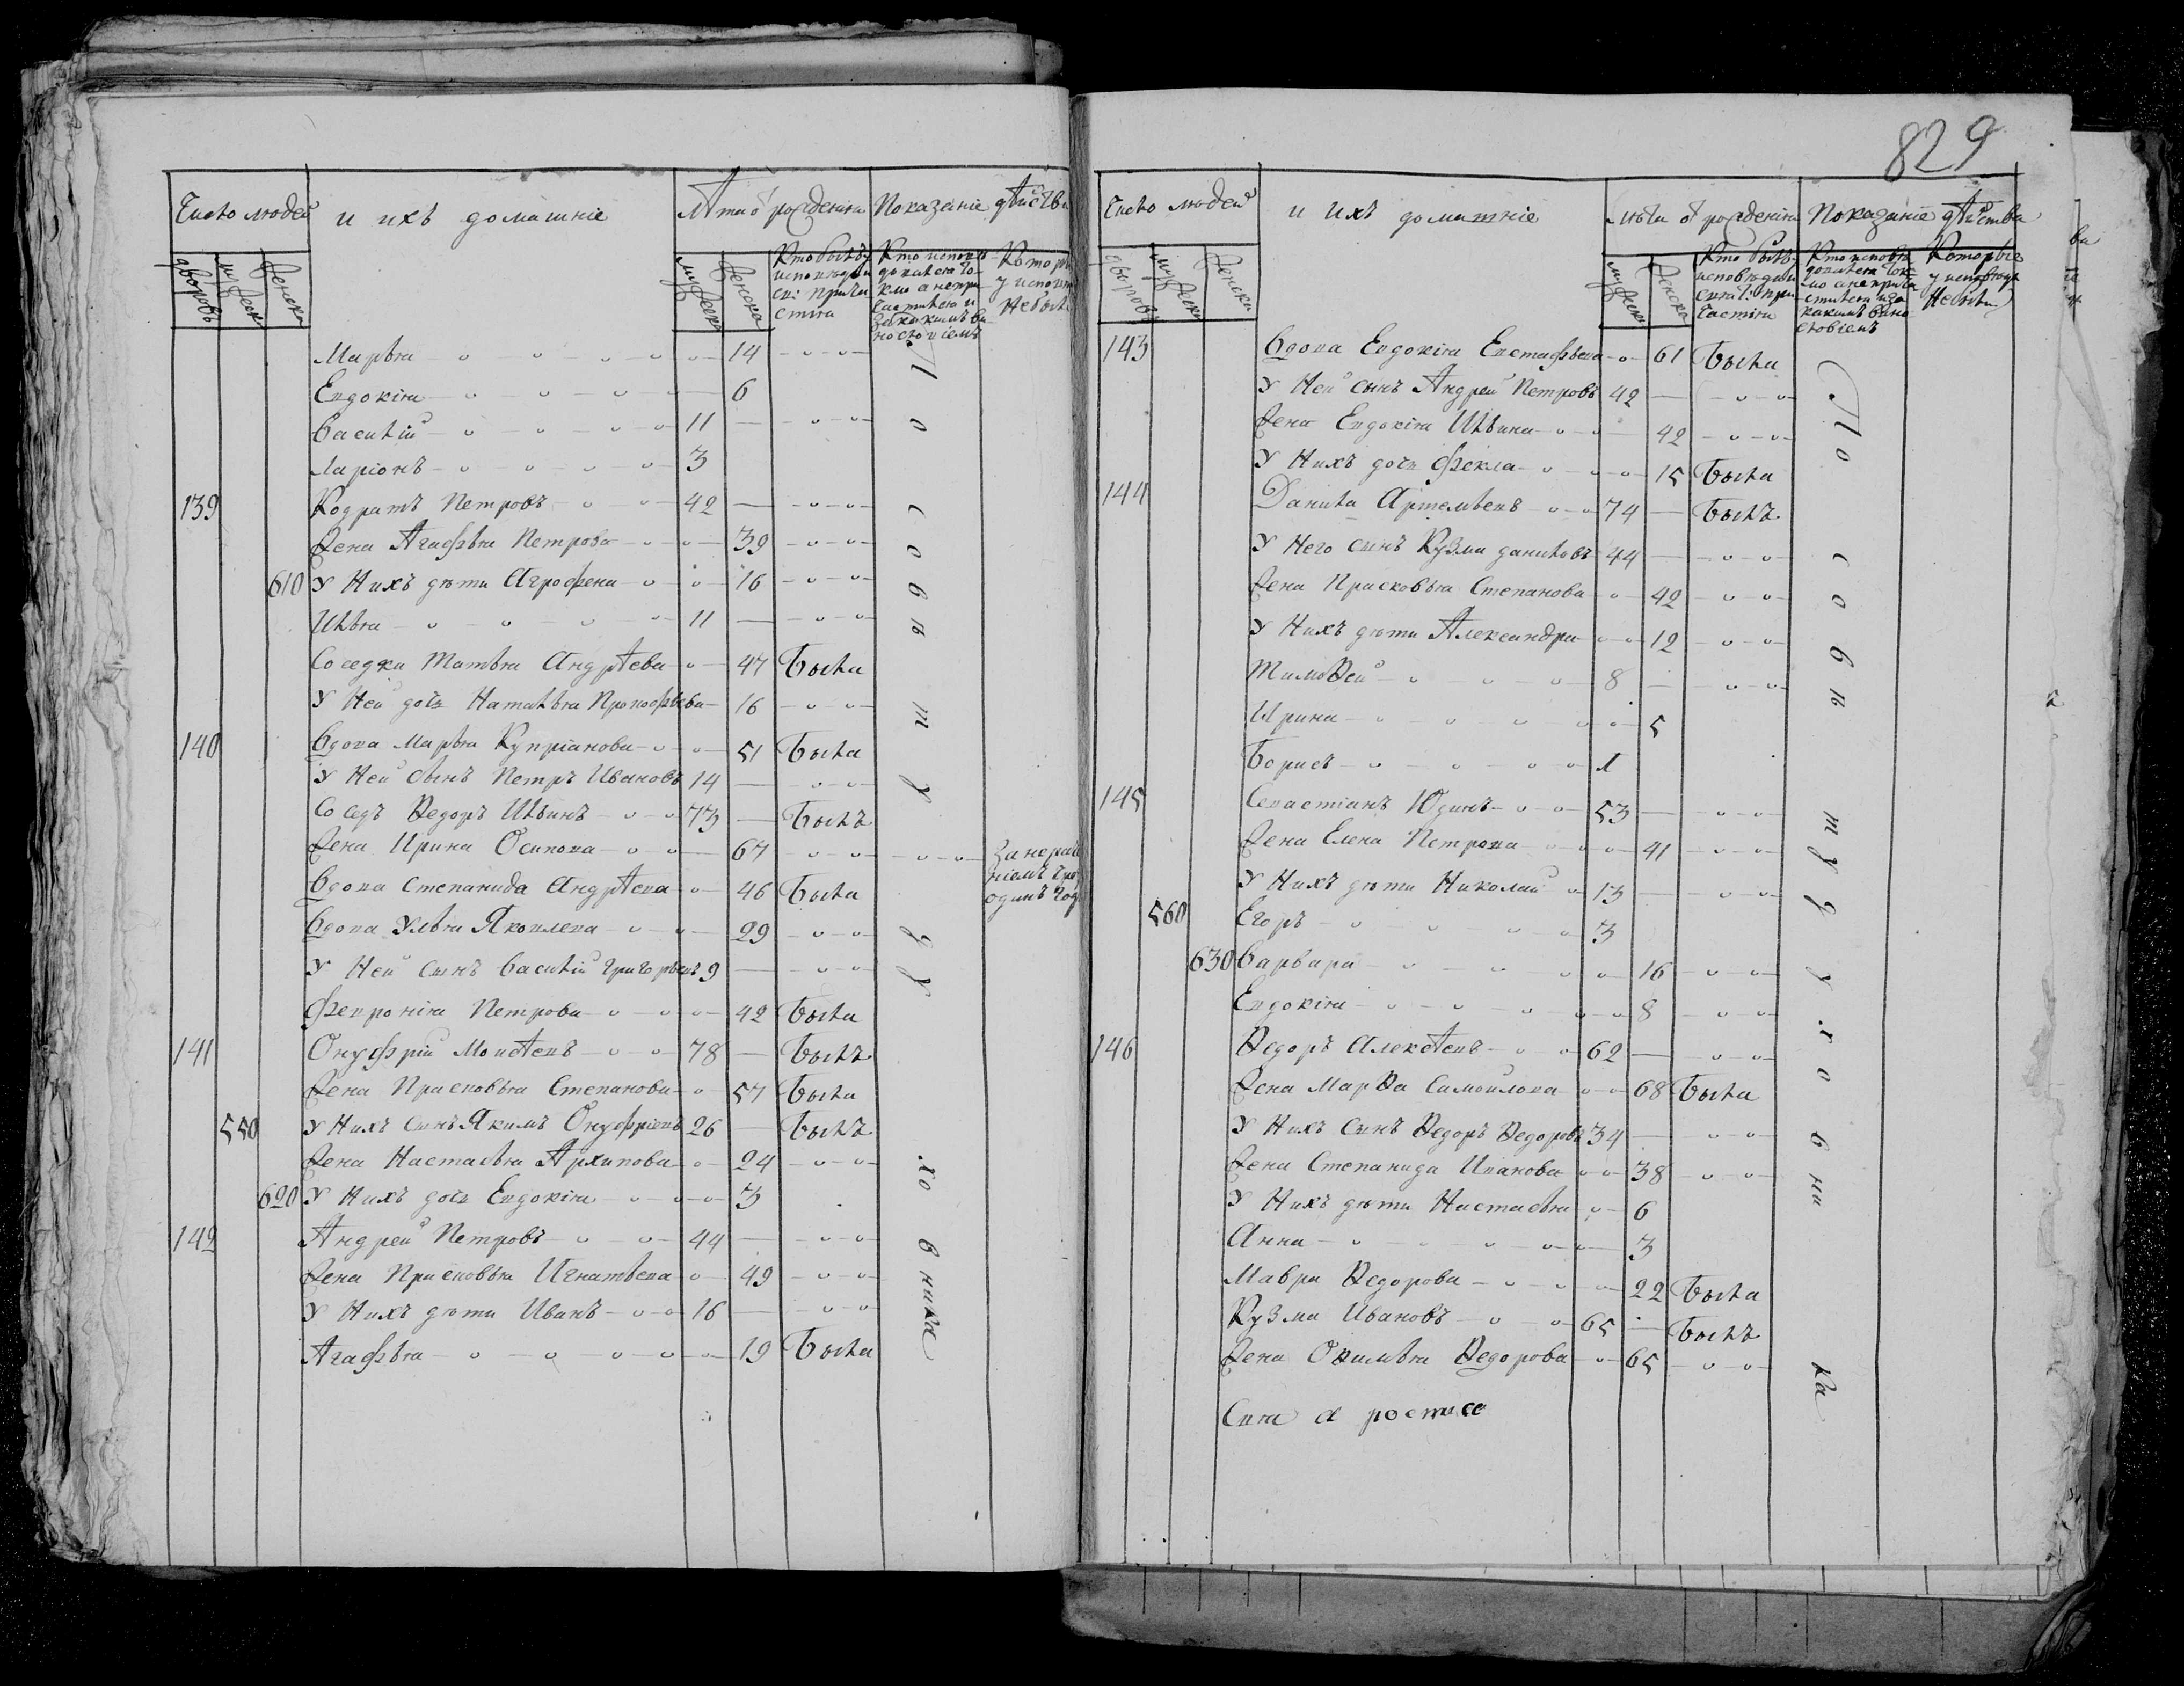 Число людей и ихъ домашніе Лѣта ѿ рожденія Показаніе дѣйства
дворовъ мужеска женска мужеска женска
Кто былъ у исповѣди и св: причастия
Кто исповѣдался токмо а не причастился и за какимъ виннословіемъ
Которые у исповѣди не были
Марья 14
Евдокія 6
Василій 11
Ларіонъ 3
139 Кодратъ Петровъ 42
Жена Агафья Петрова 39
610 У Нихъ дѣти Агрофена 16
Илья 11
Соседка Татьяна Андрѣева 47 Была
У Ней дочь Наталья Прокофьева 16
140 Вдова Марья Купріанова 51 Была
У Ней сынъ Петръ Ивановъ 14
Соседъ Ѳедоръ Ильинъ 73 Былъ
Жена Ирина Осипова 67
Вдова Степанида Андрѣева 46 Была
одинъ годъ
Вдова Улья Яковлева 29
У Ней сынъ Василій Григорьевъ 9
Февронія Петрова 42 Была
141 Онуфрій Моисѣевъ 78 Былъ
Жена Прасковья Степанова 57 Была
550 У Нихъ сынъ Якимъ Онуфріевъ 26 Былъ
Жена Настасья Архипова 24
620 У Нихъ дочь Евдокія 3
142 Андрей Петровъ 44
Жена Прасковья Игнатьева 49
У Нихъ дѣти Иванъ 16
Агафья 19 Была
По совѣту духовника
829
Число людей и ихъ домашніе Лѣта ѿ рожденія Показаніе дѣйства
дворовъ мужеска женска мужеска женска
Кто былъ у исповѣди и свят: причастия
Кто исповѣдался токмо а не причастился и за какимъ виннословіемъ
Которые у исповѣди не были
143 Вдова Евдокія Евстафьева 61 Была
У Ней сынъ Андрей Петровъ 42
Жена Евдокія Ильина 42
У Нихъ дочь Фекла 15 Была
144 Данила Артемьевъ 74 Былъ
У Него сынъ Кузма Даниловъ 44
Жена Прасковья Степанова 42
У Нихъ дѣти Александра 12
Тимоѳей 8
Ирина 5
Борисъ 1
145 Севастіанъ Юдинъ 53
Жена Елена Петрова 41
У Нихъ дѣти Николай 13
560 Егоръ 3
630 Варвара 16
Евдокія 8
146 Ѳедоръ Алексѣевъ 62
Жена Марѳа Самойлова 68 Была
У Нихъ сынъ Ѳедоръ Ѳедоровъ 34
Жена Степанида Иванова 38
У Нихъ дѣти Настасья 6
Анна 3
Мавра Ѳедорова 22 Была
Кузма Ивановъ 65 Былъ
Жена Ѳедорова 65
По совѣту духовника